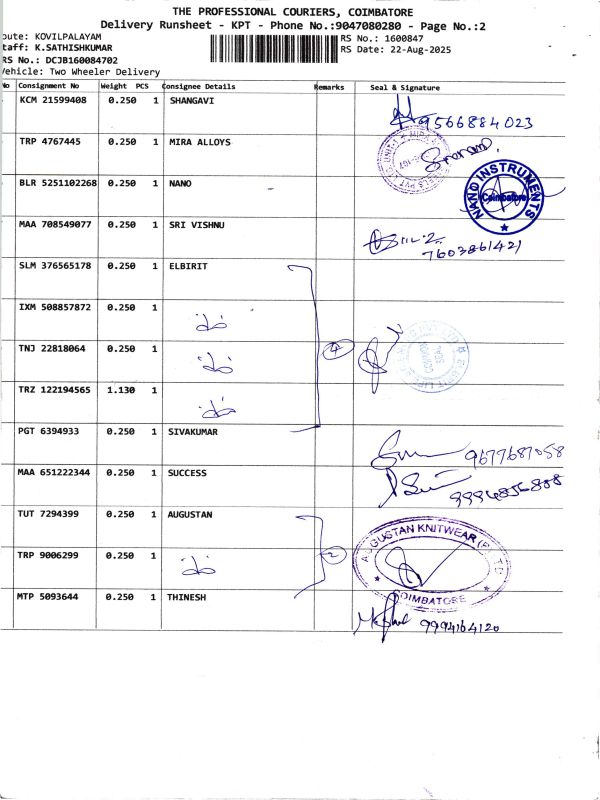 THE PROFESSIONAL COURIERS, COIMBATORE
Delivery Runsheet - KPT - Phone No.:9047080280 - Page No.:2
oute: KOVILPALAYAM
taff: K.SATHISHKUMAR
RS No.: DCJB160084702
Vehicle: Two Wheeler Delivery
RS No.: 1600847
RS Date: 22-Aug-2025
No Consignment No Weight PCS Consignee Details Remarks Seal & Signature
KCM 21599408 0.250 1 SHANGAVI 9566884023
TRP 4767445 0.250 1 MIRA ALLOYS
BLR 5251102268 0.250 1 NANO NANO INSTRUMENTS Coimbatore
MAA 708549077 0.250 1 SRI VISHNU 7603861421
SLM 376565178 0.250 1 ELBIRIT
IXM 508857872 0.250 1
TNJ 22818064 0.250 1 4 COMMON SEAL
TRZ 122194565 1.130 1
PGT 6394933 0.250 1 SIVAKUMAR 9677687058
MAA 651222344 0.250 1 SUCCESS
TUT 7294399 0.250 1 AUGUSTAN
TRP 9006299 0.250 1 2 AUGUSTAN KNITWEAR (P) LTD COIMBATORE
MTP 5093644 0.250 1 THINESH 9994164120